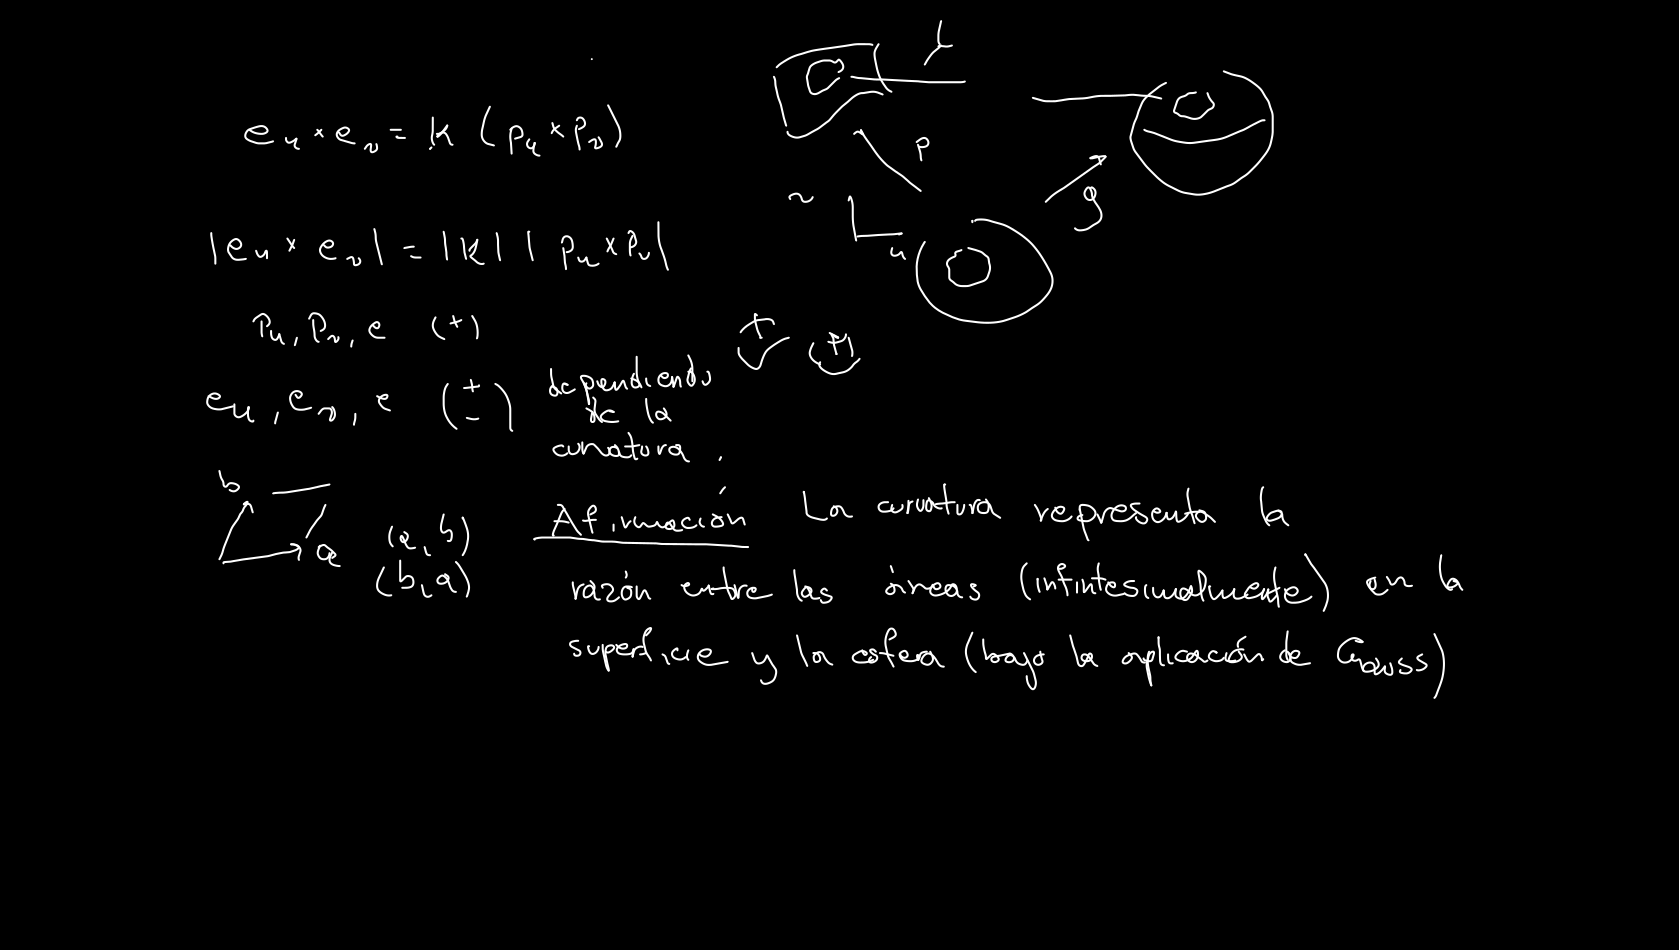 e_u × e_v = k (p_u × p_v)
|e_u × e_v| = |k| |p_u × p_v|
p_u, p_v, e (+)
e_u, e_v, e (+ -) dependiendo
de la
curvatura.
b
a
(a, b)
(b, a)
Afirmación La curvatura representa la
razón entre las áreas (infintesimalmente) en la
superficie y la esfera (bajo la aplicación de Gauss)
p
v
u
g